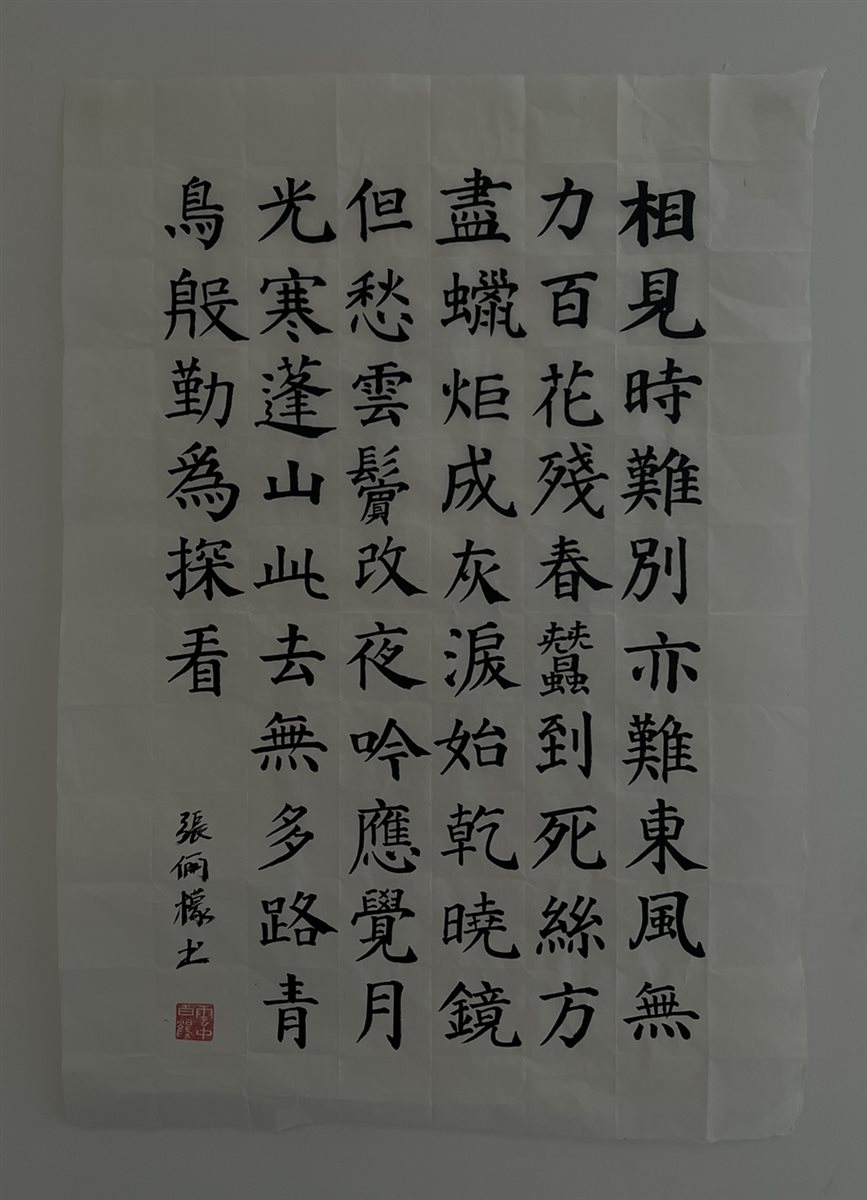 相見時難別亦難東風無
力百花殘春蠶到死絲方
盡蠟炬成灰淚始乾曉鏡
但愁雲鬢改夜吟應覺月
光寒蓬山此去無多路青
鳥殷勤為探看
張俪檬书